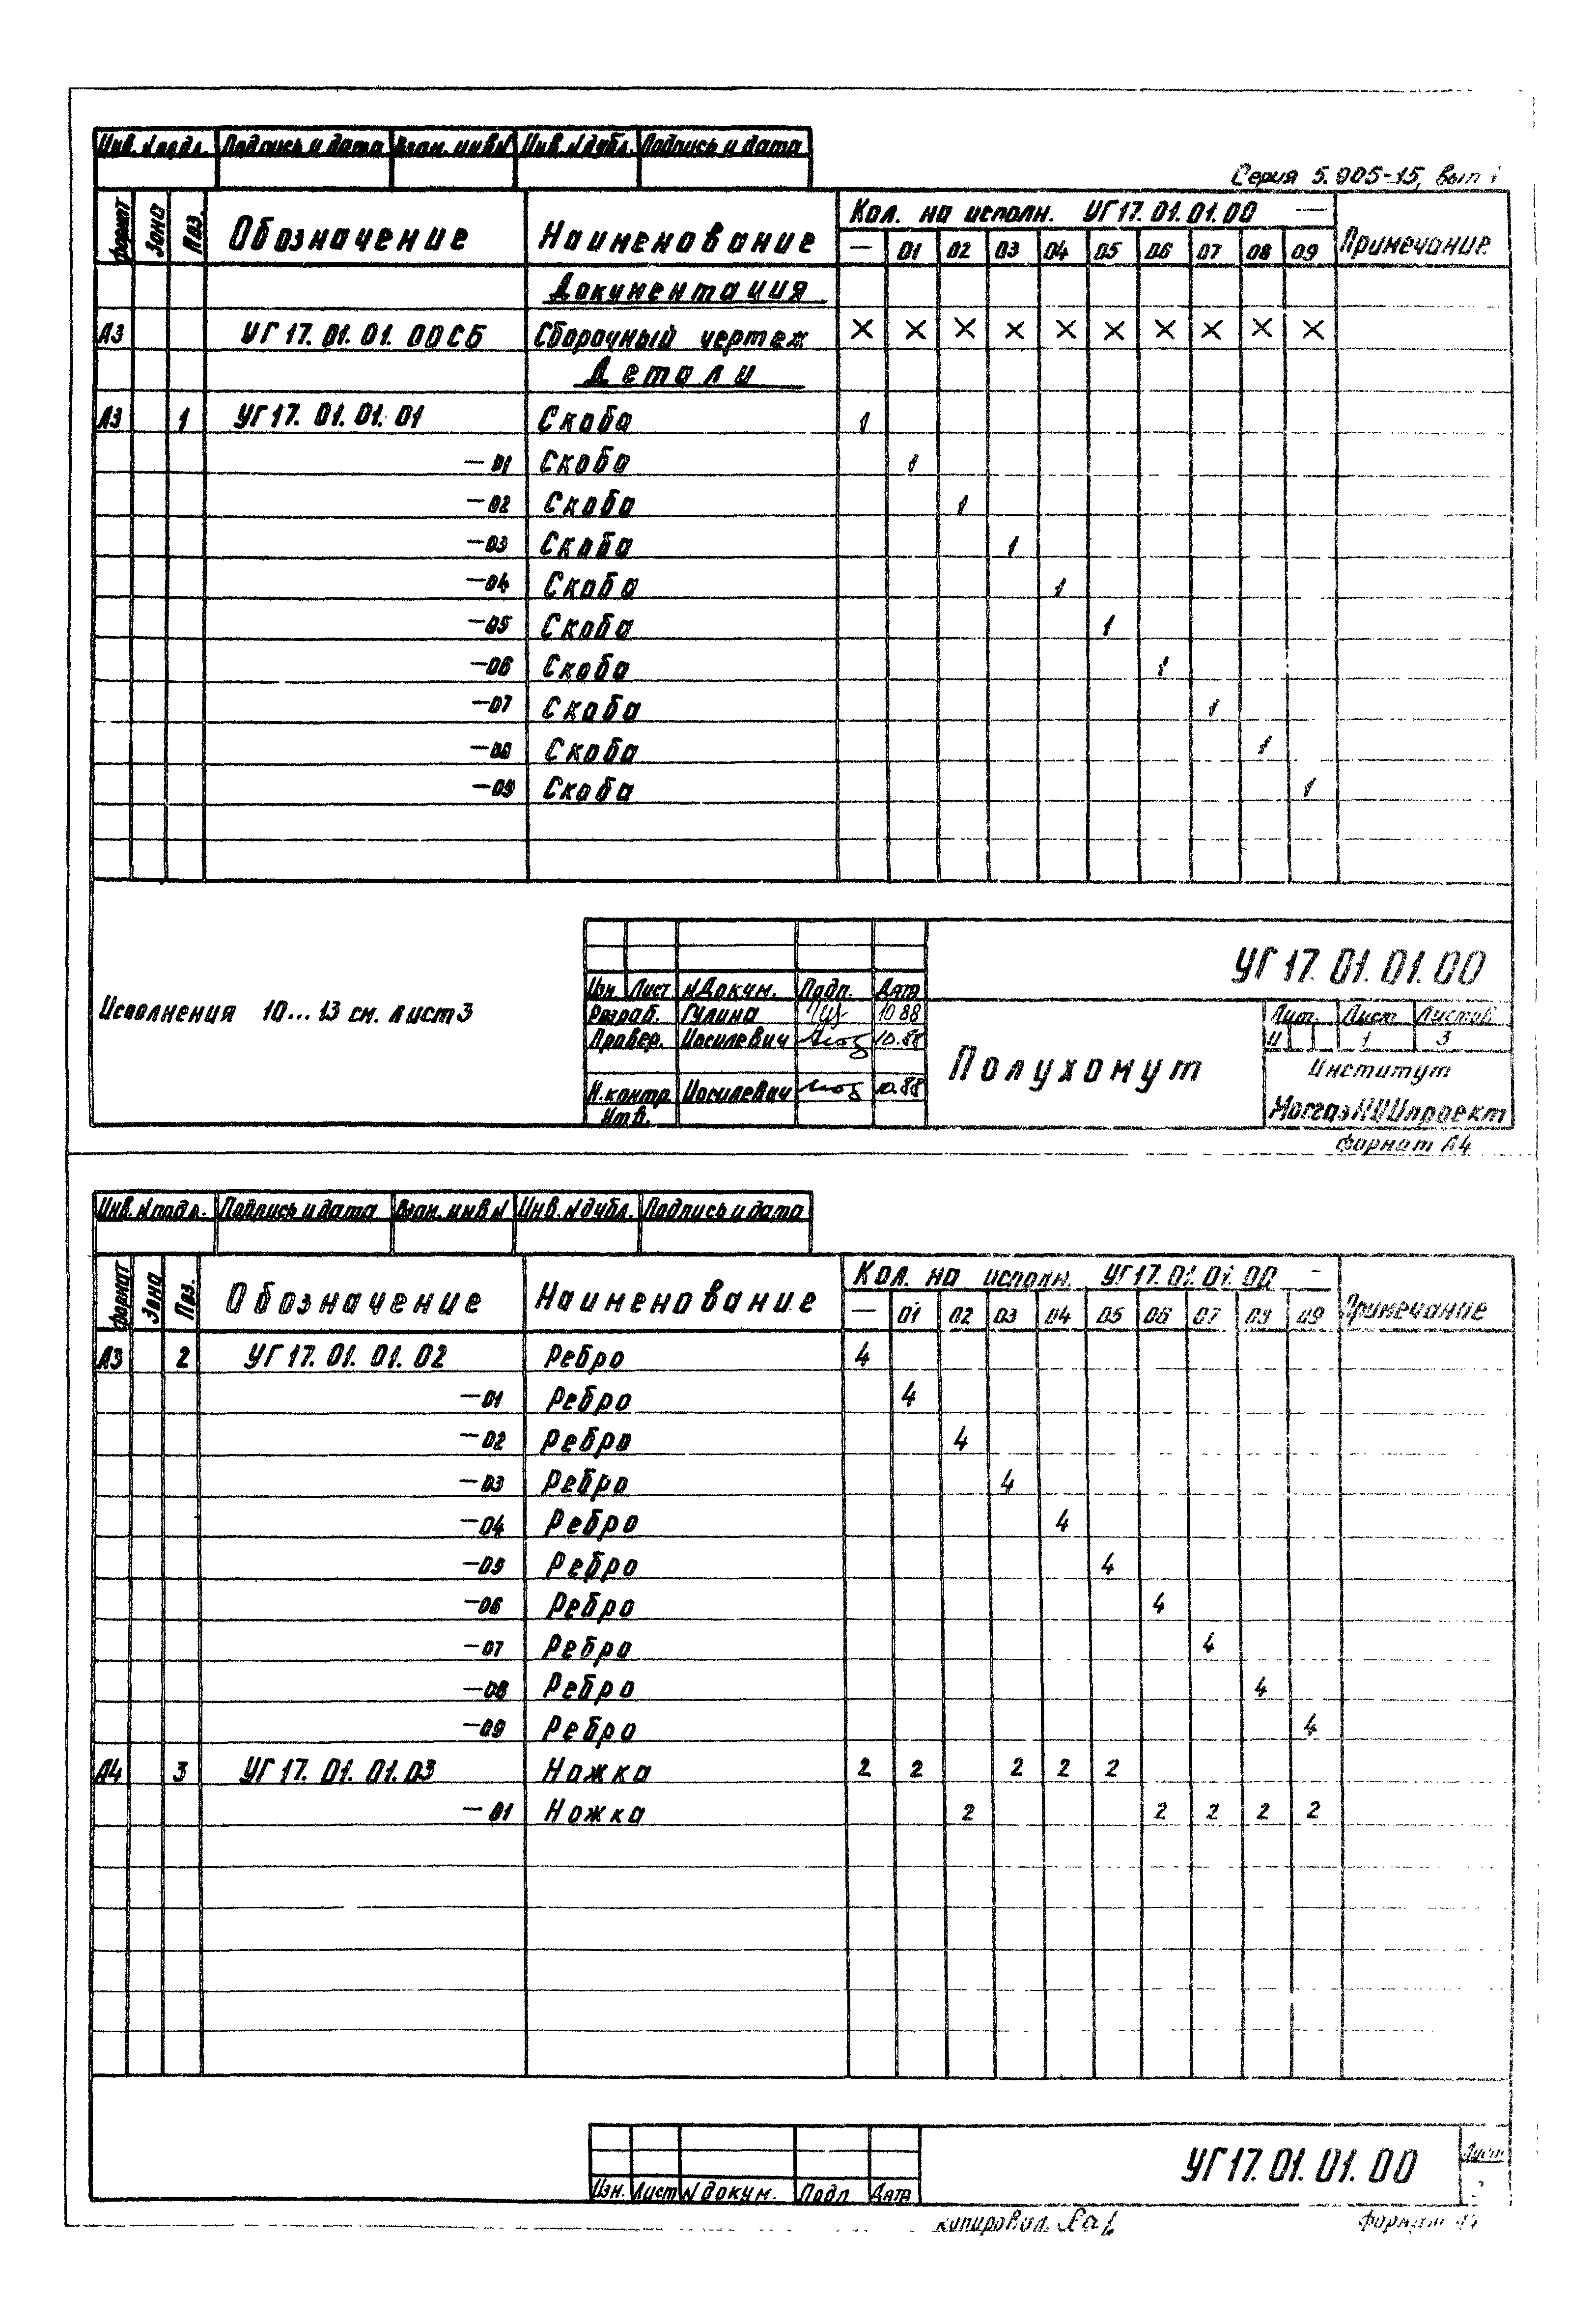 Инв. № подл. Подпись и дата Взам. инв № Инв. № дубл. Подпись и дата
Серия 5.905-15, вып 1
Формат Зона Поз. Обозначение Наименование Кол. на исполн. УГ17.01.01.00 — Примечание
— 01 02 03 04 05 06 07 08 09
Документация
А3 УГ17.01.01.00СБ Сборочный чертеж × × × × × × × × × ×
Детали
А3 1 УГ17.01.01.01 Скоба 1
—01 Скоба 1
—02 Скоба 1
—03 Скоба 1
—04 Скоба 1
—05 Скоба 1
—06 Скоба 1
—07 Скоба 1
—08 Скоба 1
—09 Скоба 1
УГ17.01.01.00
Изм. Лист № Докум. Подп. Дата
Исполнения 10...13 см. лист 3
Разраб. Гулина 10.88
Провер. Иосилевич 10.88
Н.контр. Иосилевич 10.88
Утв.
Полухомут
Лит. Лист Листов
И 1 3
Институт
МосгазНИИпроект
Формат А4
Инв. № подл. Подпись и дата Взам. инв № Инв. № дубл. Подпись и дата
Формат Зона Поз. Обозначение Наименование Кол. на исполн. УГ17.01.01.00 — Примечание
— 01 02 03 04 05 06 07 08 09
А3 2 УГ17.01.01.02 Ребро 4
—01 Ребро 4
—02 Ребро 4
—03 Ребро 4
—04 Ребро 4
—05 Ребро 4
—06 Ребро 4
—07 Ребро 4
—08 Ребро 4
—09 Ребро 4
А4 3 УГ17.01.01.03 Ножка 2 2 2 2 2
—01 Ножка 2 2 2 2 2
Изм. Лист № докум. Подп Дата
УГ17.01.01.00
Лист
копировал.
формат